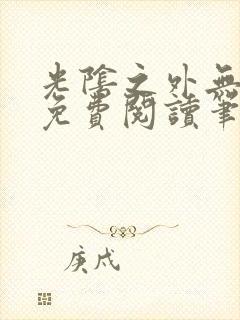 光陰之外無
免費閱讀筆
庚戌